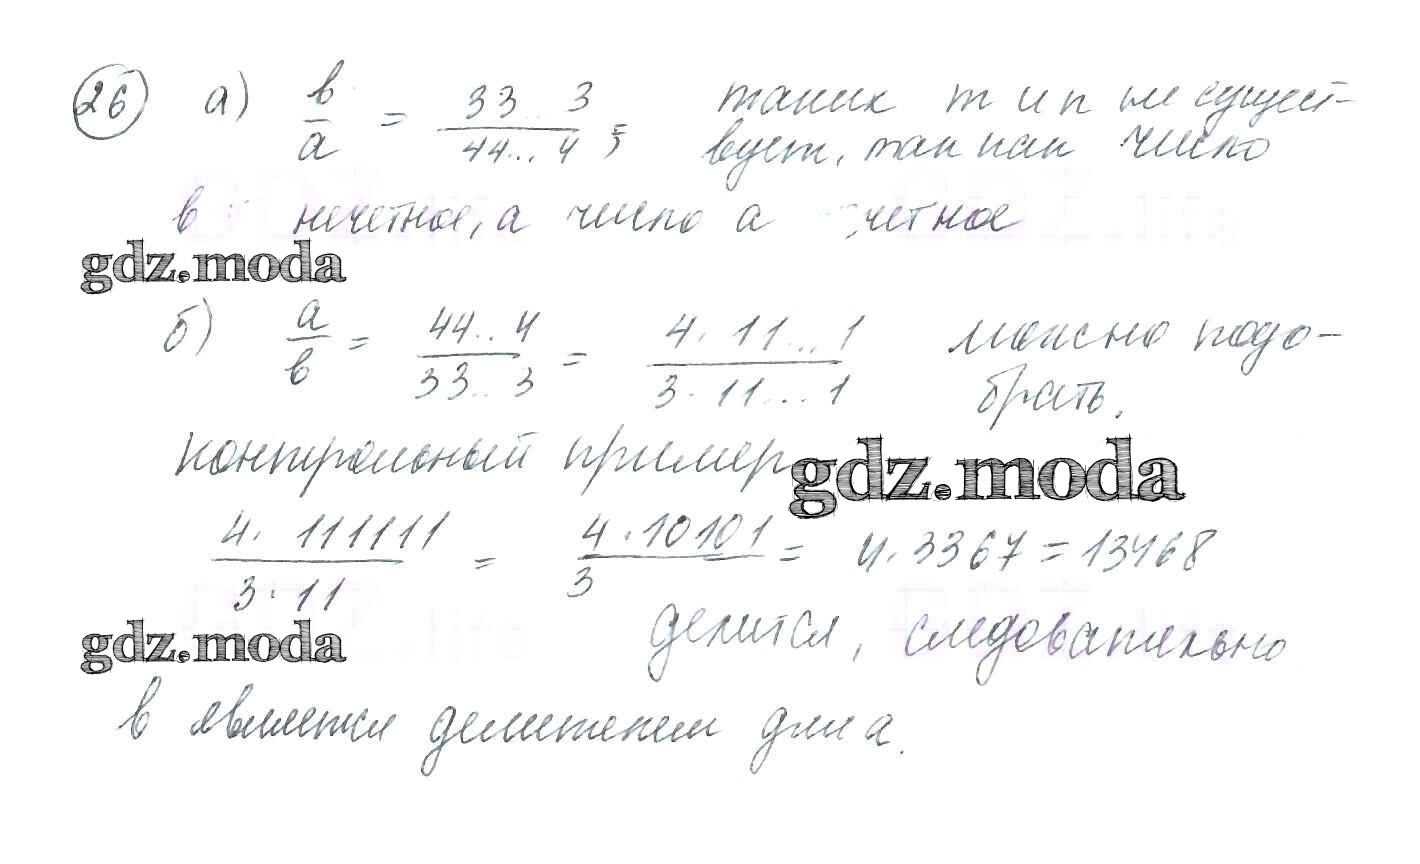 26 а) в/а = 33...3/44...4 ; таких m и n не сущест-
вует, так как число
в нечетное, а число а четное
gdz.moda
б) а/в = 44..4/33..3 = 4·11...1/3·11...1 можно подо-
брать.
контрольный пример
gdz.moda
4·111111/3·11 = 4·10101/3 = 4·3367=13468
gdz.moda
делится, следовательно
в является делителем для а.